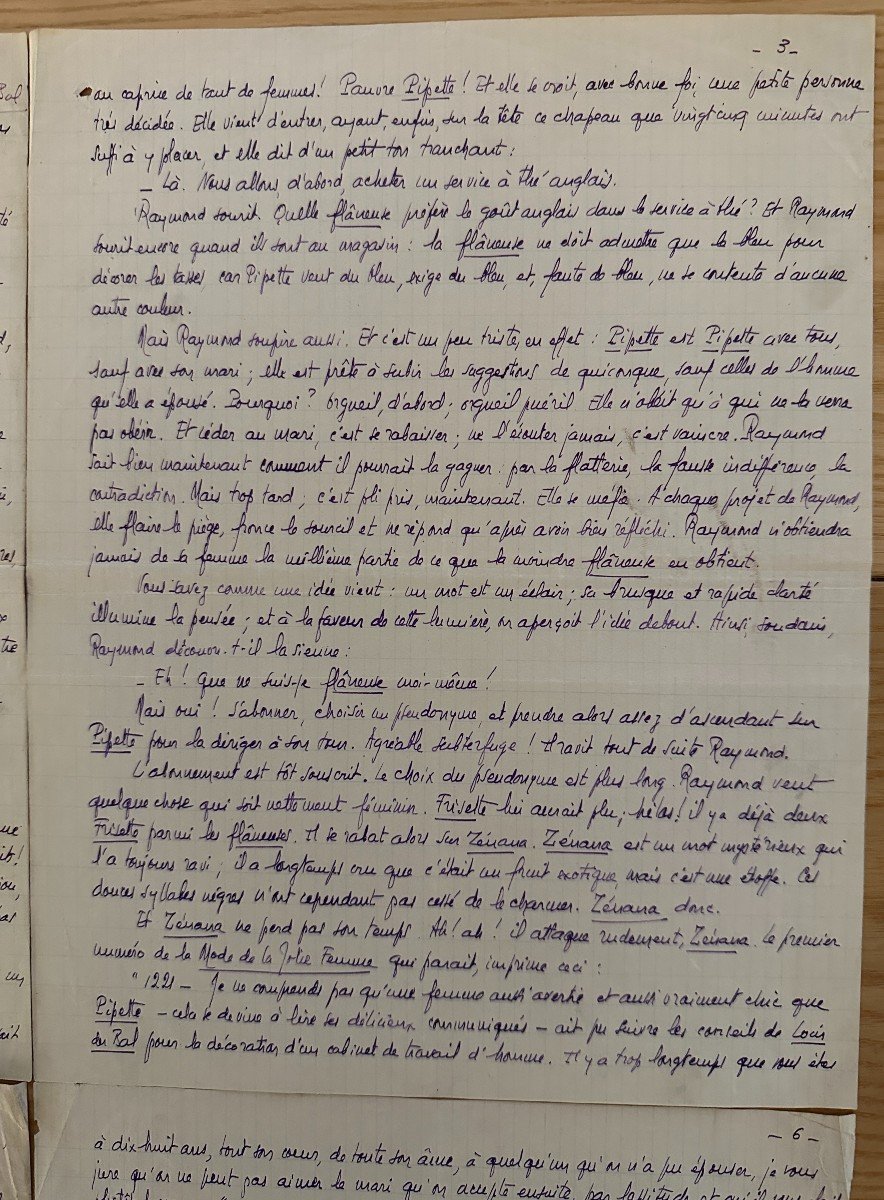 - 3 -
au caprice de tant de femmes! Pauvre Pipette! Et elle se croit, avec bonne foi, une petite personne
très décidée. Elle vient d'entrer, ayant, enfin, sur la tête ce chapeau que vingt cinq minutes ont
suffi à y placer, et elle dit d'un petit ton tranchant:
- Là. Nous allons, d'abord, acheter un service à thé anglais.
Raymond sourit. Quelle flâneuse préfère le goût anglais dans le service à thé? Et Raymond
sourit encore quand ils sont au magasin: la flâneuse ne doit admettre que le bleu pour
décorer les tasses car Pipette veut du bleu, exige du bleu, et, faute de bleu, ne se contente d'aucune
autre couleur.
Mais Raymond soupire aussi. Et c'est un peu triste, en effet: Pipette est Pipette avec tous,
sauf avec son mari; elle est prête à subir les suggestions de quiconque, sauf celles de l'homme
qu'elle a épousé. Pourquoi? orgueil, d'abord; orgueil puéril. Elle n'obéit qu'à qui ne la verra
pas obéir. Et céder au mari, c'est se rabaisser; ne l'écouter jamais, c'est vaincre. Raymond
sait bien maintenant comment il pourrait la gagner: par la flatterie, la fausse indifférence, la
contradiction. Mais trop tard; c'est pli pris, maintenant. Elle se méfie. A chaque projet de Raymond,
elle flaire le piège, fronce le sourcil et ne répond qu'après avoir bien réfléchi. Raymond n'obtiendra
jamais de sa femme la millième partie de ce que la moindre flâneuse en obtient.
Vous savez comme une idée vient: un mot est un éclair; sa brusque et rapide clarté
illumine la pensée; et à la faveur de cette lumière, on aperçoit l'idée debout. Ainsi, soudain,
Raymond découvr. t-il la sienne:
- Eh! Que ne suis-je flâneuse moi-même!
Mais oui! S'abonner, choisir un pseudonyme, et prendre alors assez d'ascendant sur
Pipette pour la diriger à son tour. Agréable subterfuge! Il ravit tout de suite Raymond.
L'abonnement est tôt souscrit. Le choix du pseudonyme est plus long. Raymond veut
quelque chose qui soit nettement féminin. Frisette lui aurait plu; hélas! il y a déjà deux
Frisette parmi les flâneuses. Il se rabat alors sur Zénana. Zénana est un mot mystérieux qui
l'a toujours ravi; il a longtemps cru que c'était un fruit exotique, mais c'est une étoffe. Ces
douces syllabes nègres n'ont cependant pas cessé de le charmer. Zénana donc.
Et Zénana ne perd pas son temps. Ah! ah! il attaque rudement, Zénana. Le premier
numéro de la Mode de la Jolie Femme qui paraît, imprime ceci:
" 1221 - Je ne comprends pas qu'une femme aussi avertie et aussi vraiment chic que
Pipette - cela se devine à lire ses délicieux communiqués - ait pu suivre les conseils de Louis
du Bal pour la décoration d'un cabinet de travail d'homme. Il y a trop longtemps que vous êtes
- 6 -
à dix huit ans, tout son cœur, de toute son âme, à quelqu'un qu'on n'a pu épouser, je vous
jure qu'on ne peut pas aimer le mari qu'on accepte ensuite, par